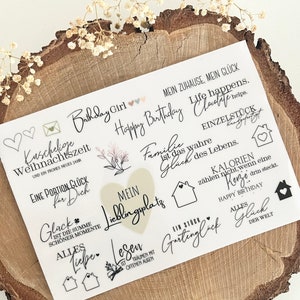 Birthday Girl
MEIN ZUHAUSE, MEIN GLÜCK
Life happens.
Chocolate helps.
Happy Birthday
Kuschelige
Weihnachtszeit
UND EIN FROHES NEUES JAHR
EINZELSTÜCK
Familie
ist das wahre
Glück des Lebens.
KALORIEN
zählen nicht wenn eine
Kerze drin steckt.
EINE PORTION GLÜCK
für Dich
MEIN
Lieblingsplatz
HAPPY BIRTHDAY
Glück
IST DIE SUMME
SCHÖNER MOMENTE
ALLES
Glück
DER WELT
ALLES
Liebe
Lesen
IST TRÄUMEN MIT
OFFENEN AUGEN
EIN STÜCK
Gartenglück